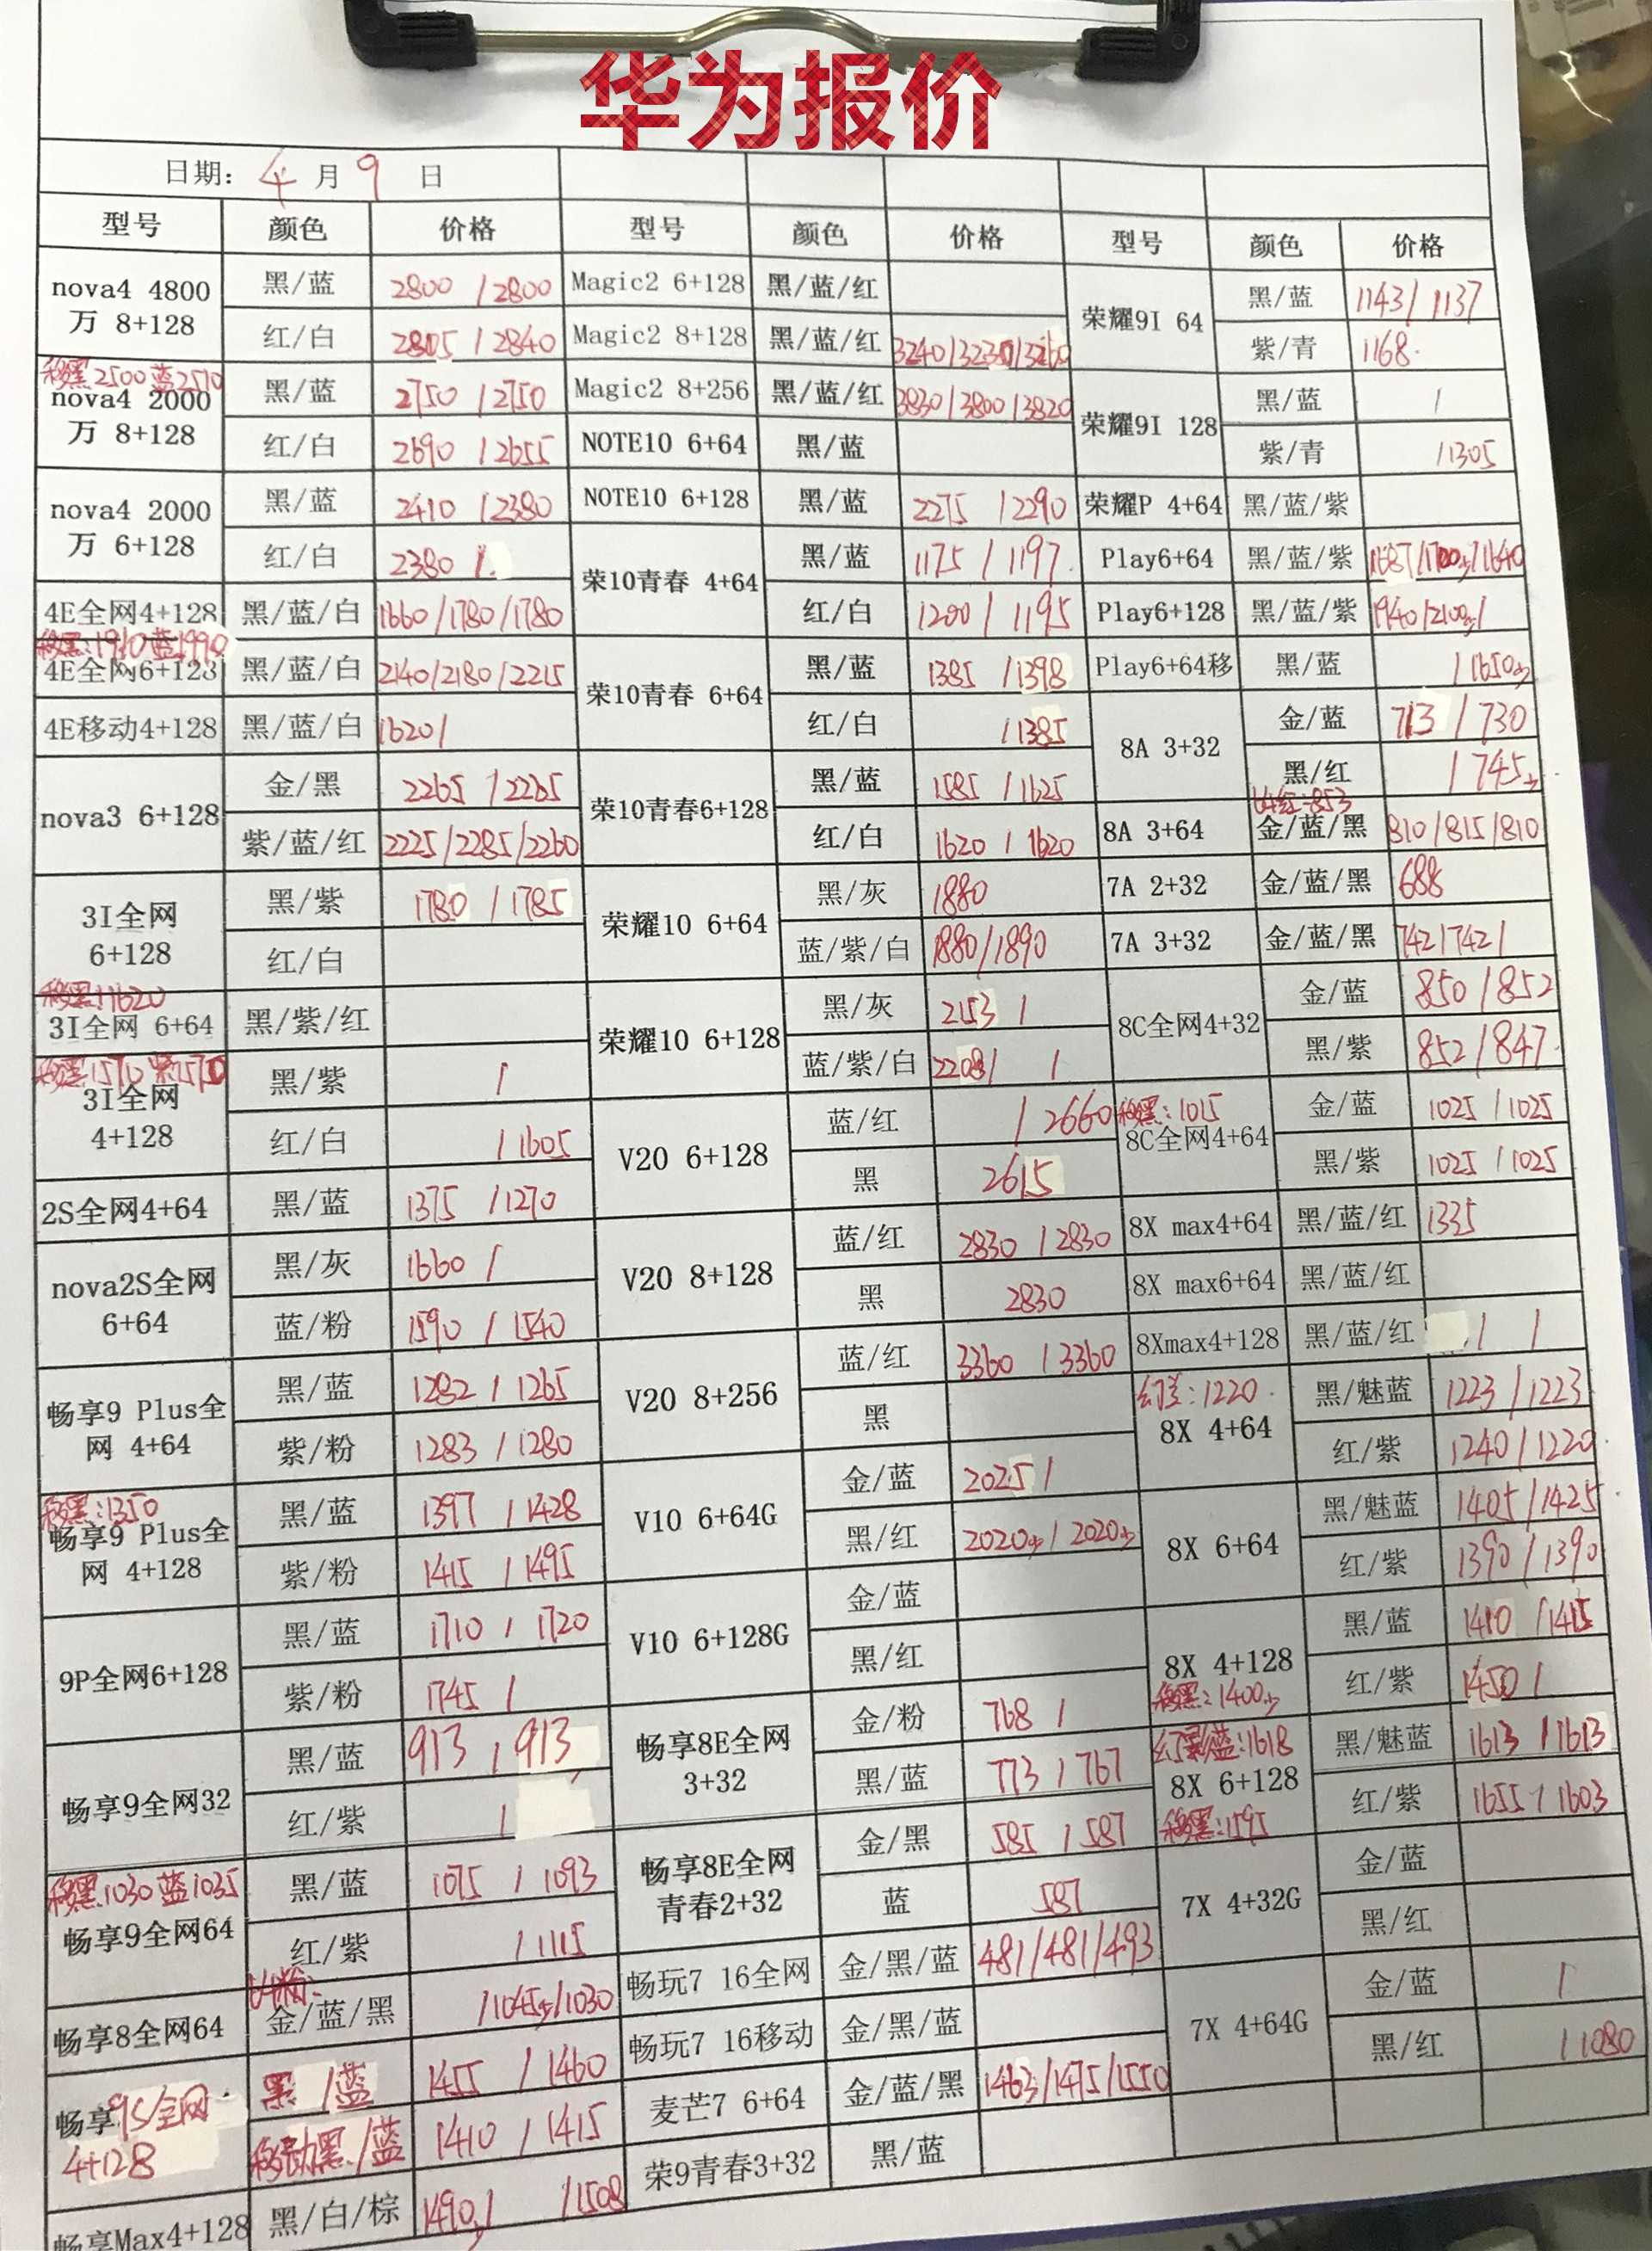 华为报价
日期: 4 月 9 日
型号 颜色 价格 型号 颜色 价格 型号 颜色 价格
nova4 4800万 8+128 黑/蓝 2800 / 2800
红/白 2805 / 2840
移黑2500 蓝2510
nova4 2000万 8+128 黑/蓝 2750 / 2750
红/白 2690 / 2655
nova4 2000万 6+128 黑/蓝 2410 / 2380
红/白 2380 /
4E全网4+128 黑/蓝/白 1660/1780/1780
移黑:1910 蓝1990
4E全网6+128 黑/蓝/白 2140/2180/2215
4E移动4+128 黑/蓝/白 1620/
nova3 6+128 金/黑 2265 / 2265
紫/蓝/红 2225/2285/2260
3I全网 6+128 黑/紫 1780 / 1785
红/白
移黑:1620
3I全网 6+64 黑/紫/红
移黑:1570 紫1570
3I全网 4+128 黑/紫 /
红/白 / 1605
2S全网4+64 黑/蓝 1375 / 1270
nova2S全网 6+64 黑/灰 1660 /
蓝/粉 1590 / 1540
畅享9 Plus全网 4+64 黑/蓝 1282 / 1265
紫/粉 1283 / 1280
移黑:1350
畅享9 Plus全网 4+128 黑/蓝 1397 / 1428
紫/粉 1415 / 1495
9P全网6+128 黑/蓝 1710 / 1720
紫/粉 1745 /
畅享9全网32 黑/蓝 913 / 913
红/紫 /
移黑1030 蓝1035
畅享9全网64 黑/蓝 1075 / 1093
红/紫 / 1115
畅享8全网64 金/蓝/黑 /1045少/1030
畅享9S/全网 4+128 黑/蓝 1455 / 1460
移动黑/蓝 1410 / 1415
畅享Max4+128 黑/白/棕 1490少/ /1508
Magic2 6+128 黑/蓝/红
Magic2 8+128 黑/蓝/红 3240/3230/3260
Magic2 8+256 黑/蓝/红 3830/3800/3820
NOTE10 6+64 黑/蓝
NOTE10 6+128 黑/蓝 2275 / 2290
荣10青春 4+64 黑/蓝 1175 / 1197
红/白 1200 / 1195
荣10青春 6+64 黑/蓝 1385 / 1398
红/白 / 1385
荣10青春6+128 黑/蓝 1585 / 1625
红/白 1620 / 1620
荣耀10 6+64 黑/灰 1880
蓝/紫/白 1880/1890
荣耀10 6+128 黑/灰 2153 /
蓝/紫/白 2208/ /
V20 6+128 蓝/红 / 2660
黑 2615
V20 8+128 蓝/红 2830 / 2830
黑 2830
V20 8+256 蓝/红 3360 / 3360
黑
V10 6+64G 金/蓝 2025 /
黑/红 2020少/ 2020少
V10 6+128G 金/蓝
黑/红
畅享8E全网 3+32 金/粉 768 /
黑/蓝 773 / 767
畅享8E全网青春2+32 金/黑 585 / 587
蓝 587
畅玩7 16全网 金/黑/蓝 481/481/493
畅玩7 16移动 金/黑/蓝
麦芒7 6+64 金/蓝/黑 1463/1475/1550
荣9青春3+32 黑/蓝
荣耀9I 64 黑/蓝 1143/ 1137
紫/青 1168
荣耀9I 128 黑/蓝 /
紫/青 / 1305
荣耀P 4+64 黑/蓝/紫
Play6+64 黑/蓝/紫 1687/1700少/1640
Play6+128 黑/蓝/紫 1940/2100少/
Play6+64移 黑/蓝 / 1650少
8A 3+32 金/蓝 713 / 730
黑/红 / 745少
8A 3+64 金/蓝/黑 810/815/810
7A 2+32 金/蓝/黑 688
7A 3+32 金/蓝/黑 742/742/
8C全网4+32 金/蓝 850 / 852
黑/紫 852 / 847
移黑:1015
8C全网4+64 金/蓝 1025 / 1025
黑/紫 1025 / 1025
8X max4+64 黑/蓝/红 1335
8X max6+64 黑/蓝/红
8Xmax4+128 黑/蓝/红 / /
8X 4+64 黑/魅蓝 1223 / 1223
红/紫 1240 / 1220
8X 6+64 黑/魅蓝 1405 / 1425
红/紫 1390 / 1390
8X 4+128 黑/蓝 1410 / 1415
移黑:1400少 红/紫 1450 /
幻影蓝:1618
8X 6+128 黑/魅蓝 1613 / 1613
移黑:1595 红/紫 1655 / 1603
7X 4+32G 金/蓝
黑/红
7X 4+64G 金/蓝 /
黑/红 / 1080